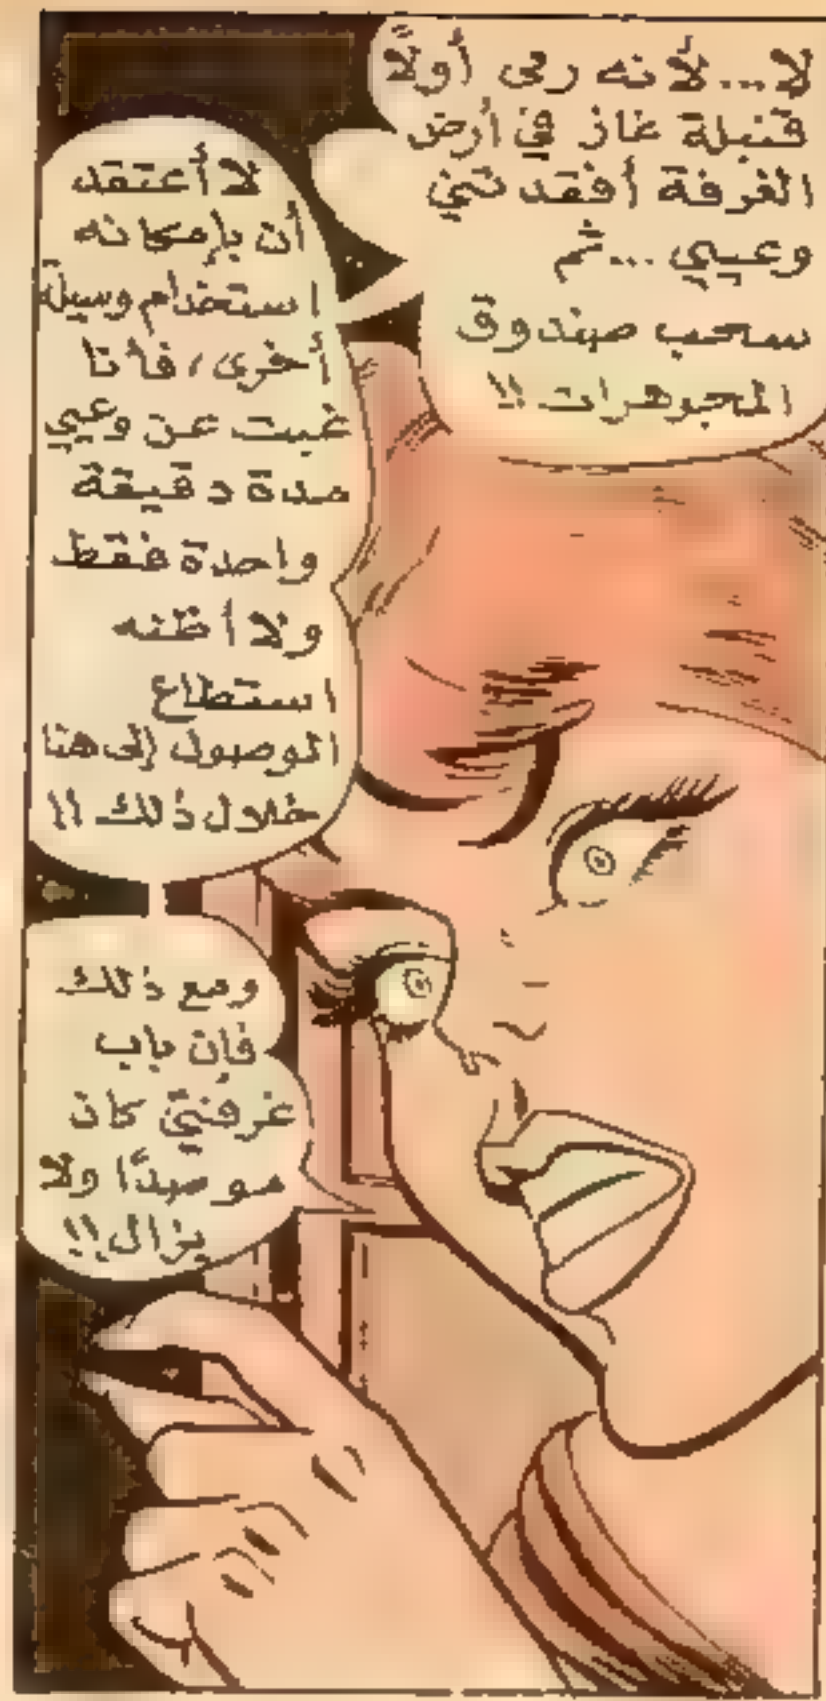 لا...لأنه رمى أولًا
قنبلة غاز في أرض
الغرفة أفقدتني
وعيي...ثم
سحب صندوق
المجوهرات !!
لا أعتقد
أن بإمكانه
استخدام وسيلة
أخرى، فأنا
غبت عن وعيي
مدة دقيقة
واحدة فقط
ولا أظنه
استطاع
الوصول إلى هنا
خلال ذلك !!
ومع ذلك
فإن باب
غرفتي كان
موصدًا ولا
يزال !!